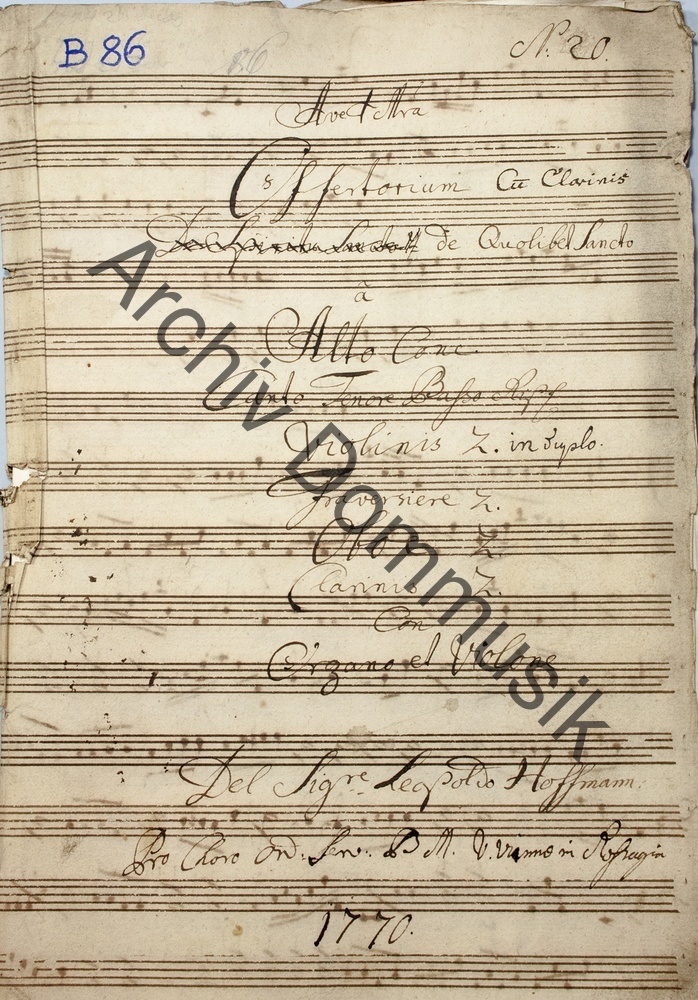 B 86
86
N. 20.
Ave Mra
Offertorium Cu Clarinis
De Spiritu Sancto de Quolibet Sancto
â
Alto Conc
Canto Tenore Basso Rip
Violinis 2. in duplo.
Traversiere 2.
Oboe 2
Clarinis 2.
Con
Organo et Violone
Del Sigre Leopoldo Hoffmann.
Pro Choro Ord. Serv. B M. V. Viennæ in
1770.
Archiv Dommusik